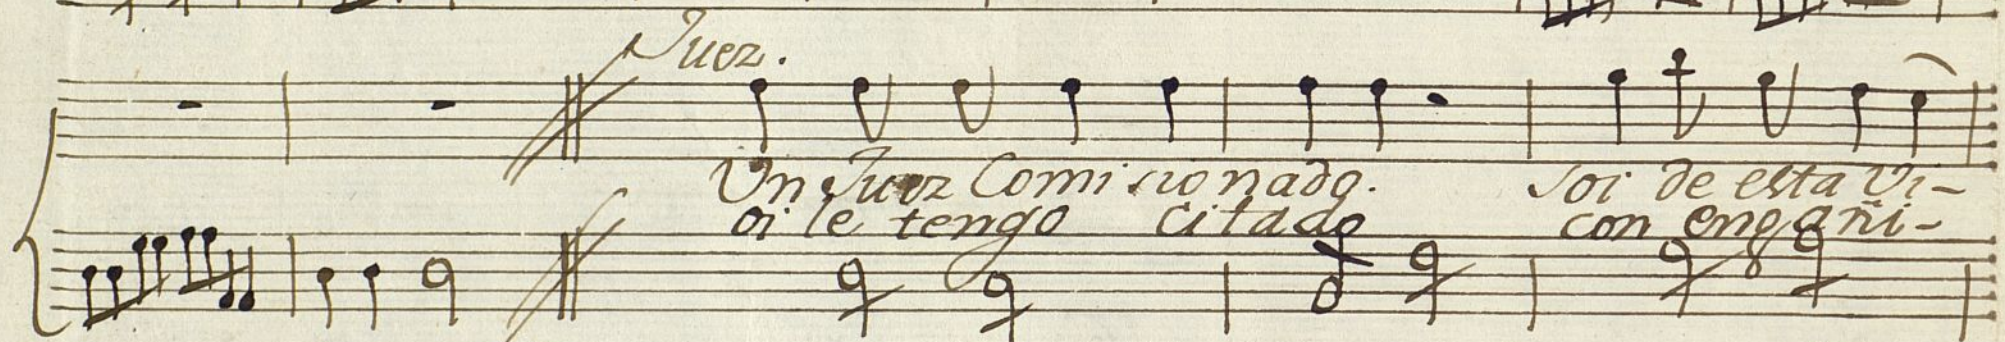 Juez.
Un Juez Comisionado. Soi de esta Vi-
oi le tengo citado con engañi-